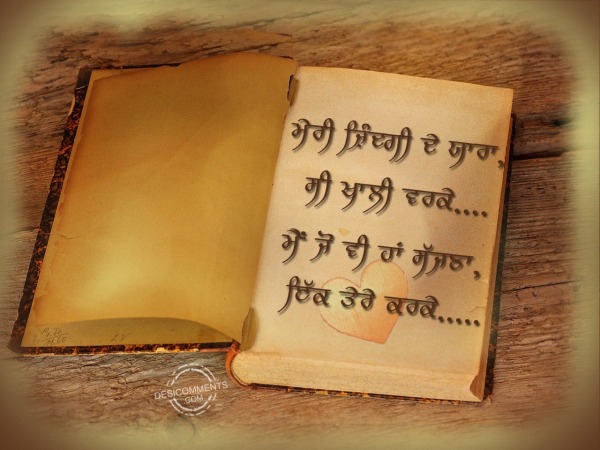 ਮੇਰੀ ਜ਼ਿੰਦਗੀ ਦੇ ਯਾਰਾ,
ਸੀ ਖਾਲੀ ਵਰਕੇ....
ਮੈਂ ਜੋ ਵੀ ਹਾਂ ਸੱਜਣਾ,
ਇੱਕ ਤੇਰੇ ਕਰਕੇ.....
DESICOMMENTS
.COM